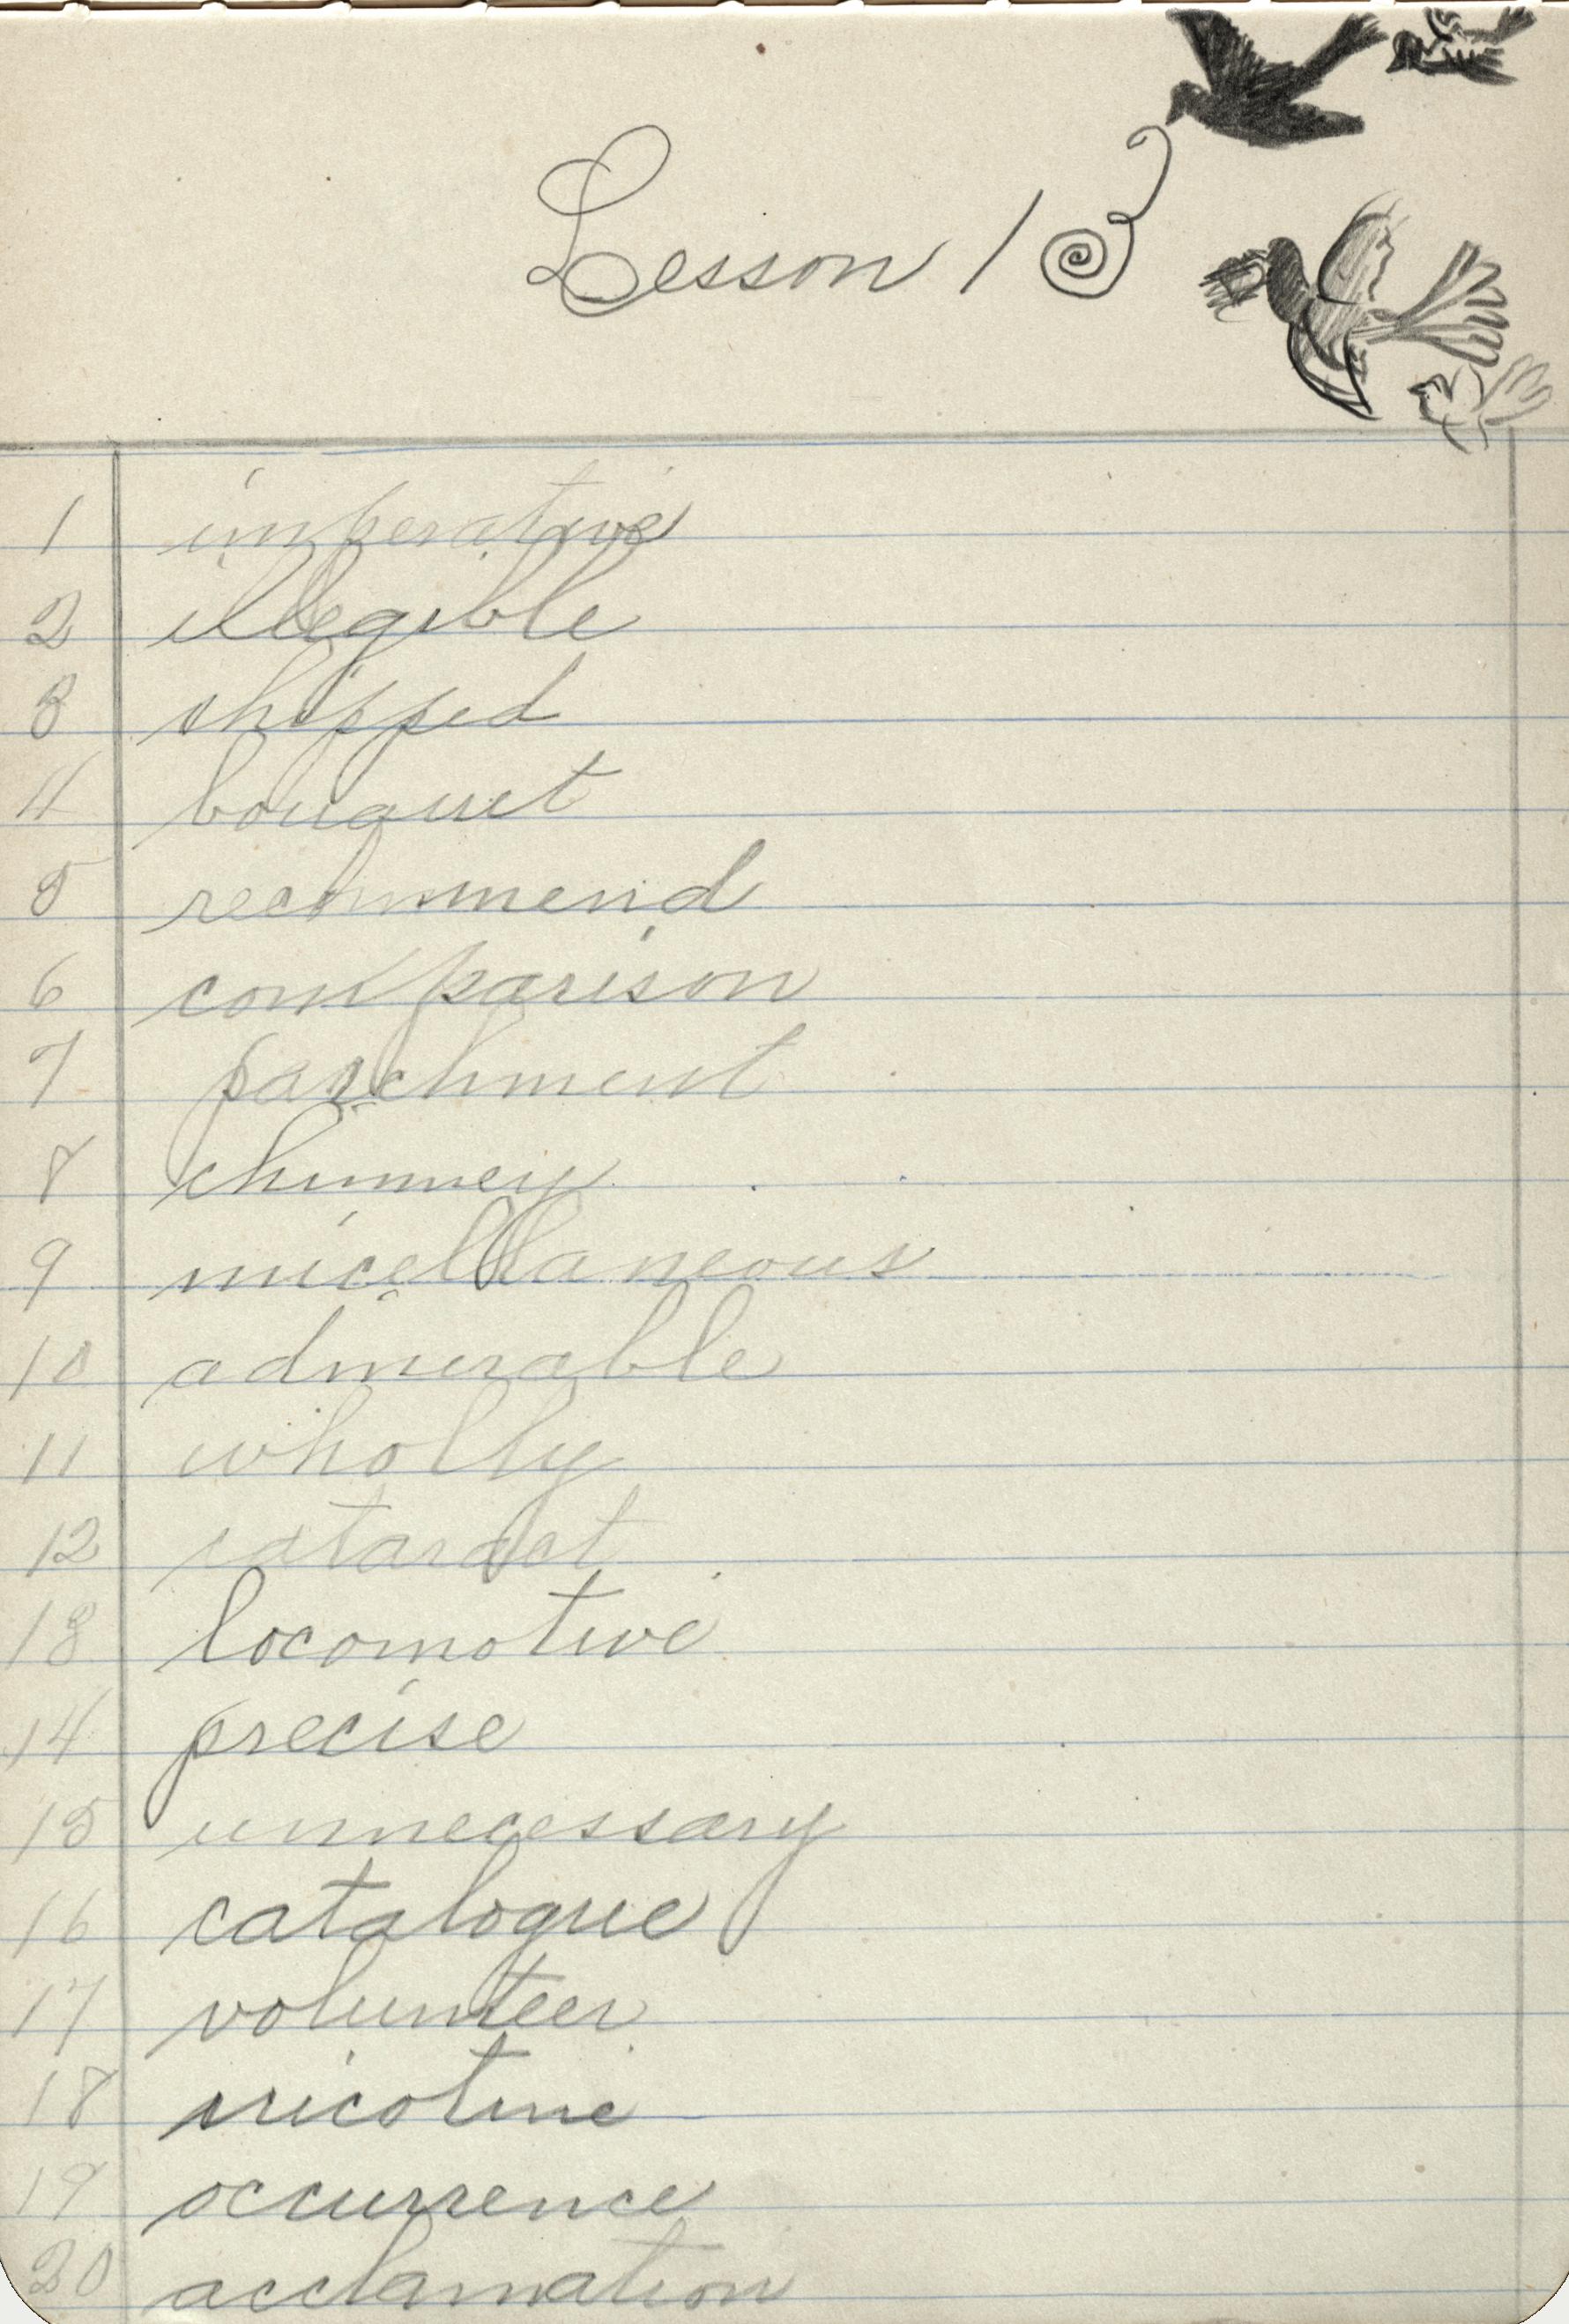 Lesson 13
1 imperative
2 illegible
3 shipped
4 bouquet
5 recommend
6 comparison
7 parchment
8 chimney
9 micellaneous
10 admirable
11 wholly
12 cataract
13 locomotive
14 precise
15 unnecessary
16 catalogue
17 volunteer
18 nicotine
19 occurrence
20 acclamation